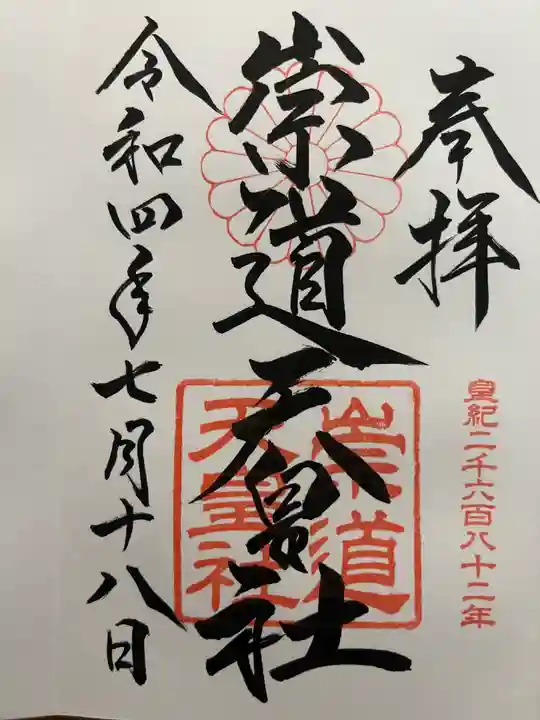 奉拝
皇紀二千六百八十二年
崇道天皇社
崇道
天皇社
令和四年七月十八日